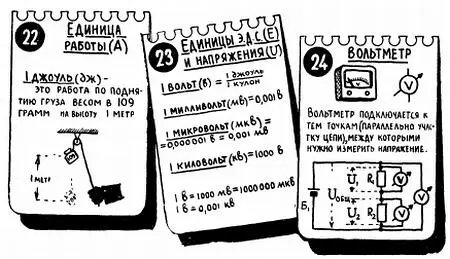 22
ЕДИНИЦА
РАБОТЫ (А)
1 ДЖОУЛЬ (ДЖ) -
ЭТО РАБОТА ПО ПОДНЯ
ТИЮ ГРУЗА ВЕСОМ В 109
ГРАММ НА ВЫСОТУ 1 МЕТР
1 МЕТР
23
ЕДИНИЦЫ Э.Д.С.(Е)
И НАПРЯЖЕНИЯ(U)
1 ВОЛЬТ(В) = 1 ДЖОУЛЬ
1 КУЛОН
1 МИЛЛИВОЛЬТ(МВ)=0,001В
1 МИКРОВОЛЬТ (МКВ)=
=0,000001 В = 0,001 МВ
1 КИЛОВОЛЬТ(КВ)=1000 В
1 В=1000 МВ=1000000 МКВ
1 В=0,001 КВ
24
ВОЛЬТМЕТР
V
ВОЛЬТМЕТР ПОДКЛЮЧАЕТСЯ К
ТЕМ ТОЧКАМ (ПАРАЛЛЕЛЬНО УЧАСТ
КУ ЦЕПИ), МЕЖДУ КОТОРЫМИ
НУЖНО ИЗМЕРИТЬ НАПРЯЖЕНИЕ.
U1 R1 V
Б1 UОБЩ V
U2 R2 V